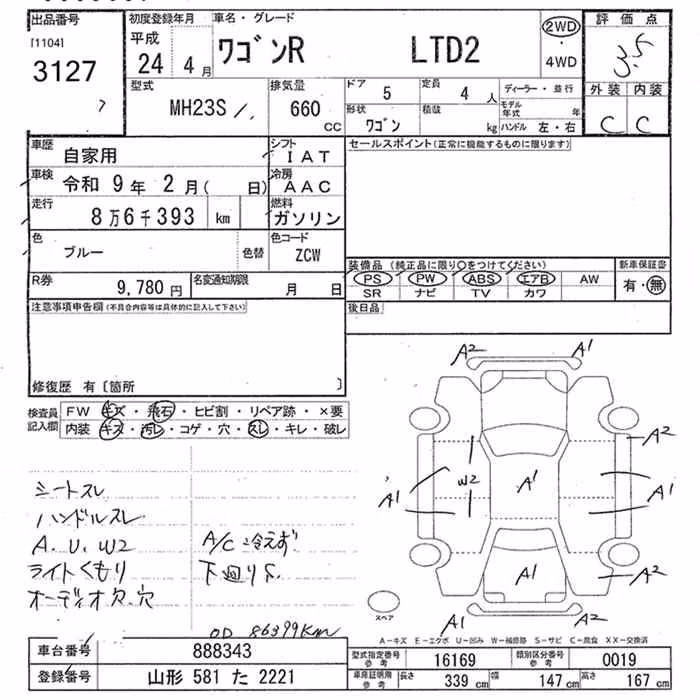 出品番号
[1104]
3127
初度登録年月
平成
24 4月
車名・グレード
ワゴンR LTD2
2WD
・
4WD
評価点
3.5
外装 内装
C C
型式
MH23S
排気量
660 CC
ドア 5
定員 4人
形状 ワゴン
積載 kg
ディーラー・並行
モデル年式 年
ハンドル 左・右
車歴 自家用
シフト IAT
車検 令和 9年 2月( 日)
冷房 AAC
走行 8万6千393 km
燃料 ガソリン
色 ブルー 色替
色コード ZCW
R券 9,780円
名変通知期限 月 日
セールスポイント(正常に機能するものに限ります)
装備品(純正品に限り○をつけてください)
PS PW ABS エアB AW
SR ナビ TV カワ
新車保証書
有・無
後日品
注意事項申告欄(不具合内容等は具体的に記入して下さい)
修復歴 有〔箇所 〕
検査員記入欄
FW キズ・飛石・ヒビ割・リペア跡・×要
内装 キズ・汚レ・コゲ・穴・スレ・キレ・破レ
シートスレ
ハンドルスレ
A.U.W2
ライトくもり
オーディオ欠.穴
A/C冷えず
下廻りS.
OD 86399km
A2 A1
A2
A1 W2 A1 A1
A1 A2
A1 A2
スペア
A-キズ E-エクボ U-凹み W-補修跡 S-サビ C-腐食 XX-交換済
車台番号 888343
登録番号 山形 581 た 2221
型式指定番号 参考 16169
類別区分番号 参考 0019
車庫証明用 参考 長さ 339 cm 幅 147 cm 高さ 167 cm